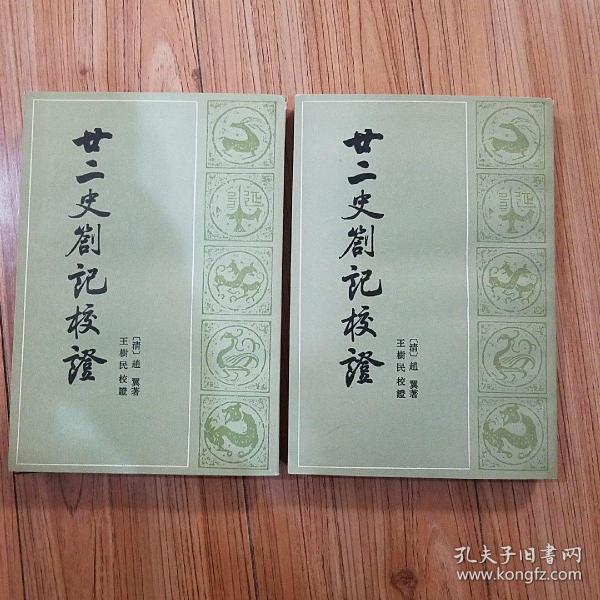 廿二史劄記校證
〔清〕趙翼著
王樹民校證
廿二史劄記校證
〔清〕趙翼著
王樹民校證
孔夫子旧書网
www.kongfz.com